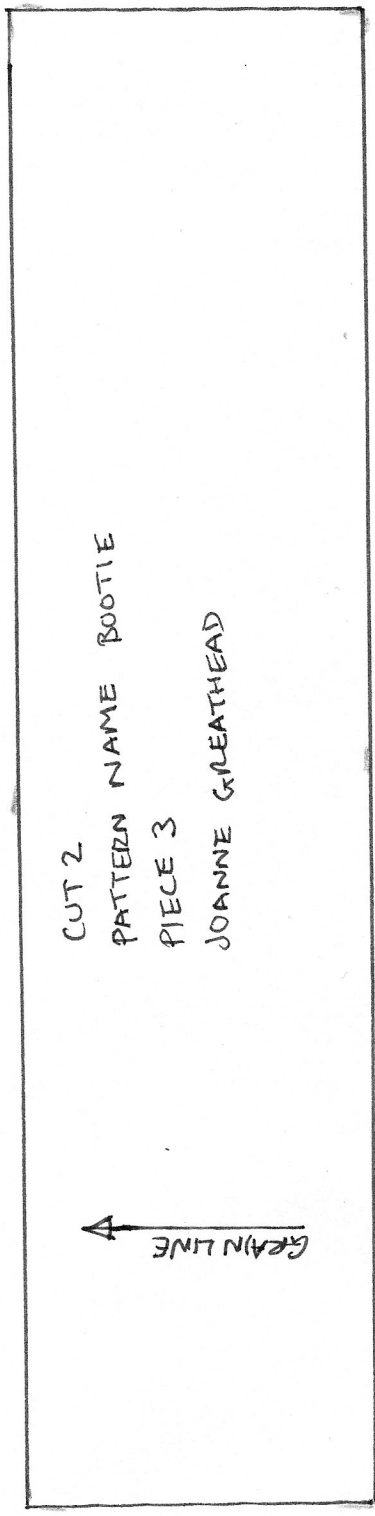 CUT 2
PATTERN NAME BOOTIE
PIECE 3
JOANNE GREATHEAD
GRAIN LINE